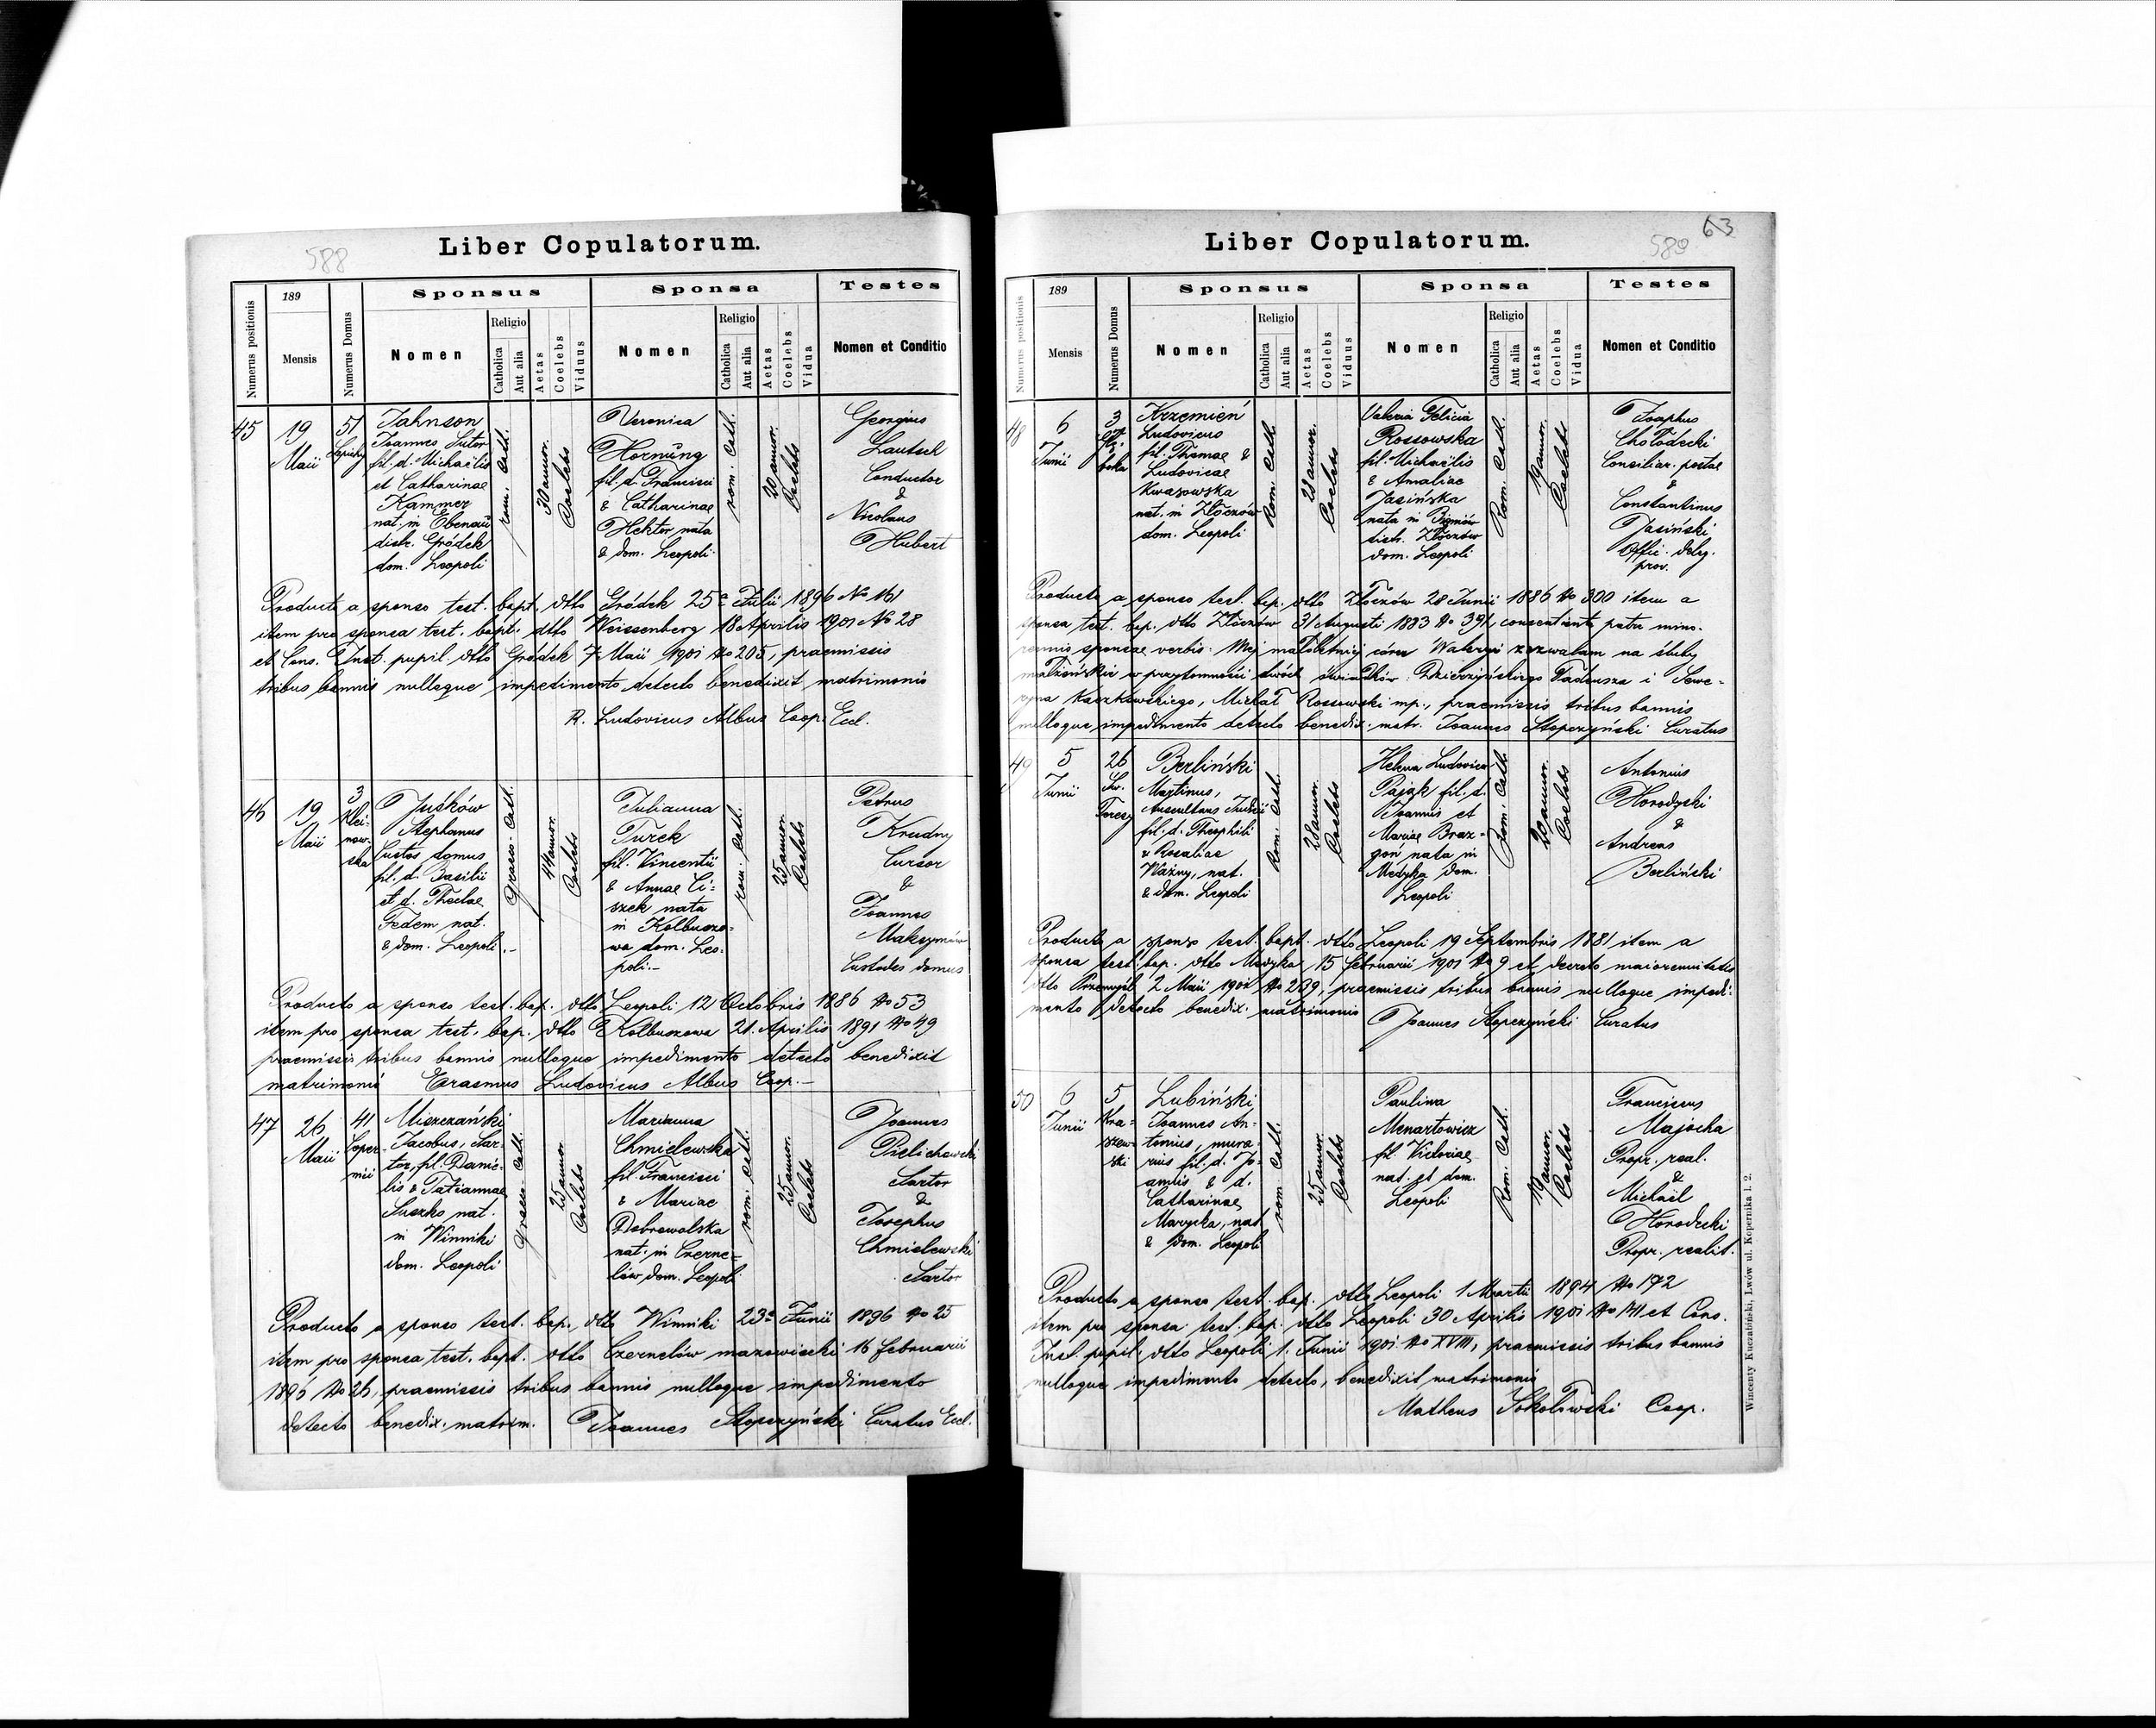 588
Liber Copulatorum.
Numerus positionis
189
Mensis
Numerus Domus
Sponsus
Nomen
Religio
Catholica
Aut alia
Aetas
Coelebs
Viduus
Sponsa
Nomen
Religio
Catholica
Aut alia
Aetas
Coelebs
Vidua
Testes
Nomen et Conditio
45
19
Maii
51
Jahnson
Joannes Sutor
fil. d. Michaëlis
et Catharinae
Kammer
nat. in Ebenau
distr. Gródek
dom. Leopoli
rom. Cath.
30 annor.
Coelebs
Veronica
Hornung
fil. d. Francisci
& Catharinae
Hektor nata
& dom. Leopoli
rom. Cath.
20 annor.
Coelebs
Georgius
Lautsch
Conductor
&
Nicolaus
Hubert
Producto a sponso test. bapt. dtto Gródek 25a Julii 1896 No 161
item pro sponsa test. bapt. dtto Weissenberg 18 Aprilis 1901 No 28
et Cons. Inst. pupil. dtto Gródek 7 Maii 1901 No 205, praemissis
tribus bannis nulloque impedimento detecto benedixit matrimonio
R. Ludovicus Albus Coop. Eccl.
46
19
Maii
3
Klei-
now-
ska
Juśków
Stephanus
Custos domus
fil. d. Basilii
et d. Theclae
Fedem nat.
& dom. Leopoli.-
Graeco. Cath.
44 annor.
Coelebs
Julianna
Turek
fil. Vincentii
& Annae Ci=
szek nata
in Kolbuszo-
wa dom. Leo-
poli.-
rom. Cath.
25 annor.
Coelebs
Petrus
Krudny
Cursor
&
Joannes
Maksymów
Custodes domus
Producto a sponso test. bap. dtto Leopoli 12 Octobris 1886 No 53
item pro sponsa test. bap. dtto Kolbuszowa 21. Aprilis 1891 No 49
praemissis tribus bannis nulloque impedimento detecto benedixit
matrimonio Erasmus Ludovicus Albus Coop.-
47
26
Maii
41
Coper-
nici
Miszczański
Jacobus, Sar-
tor, fil. Danie-
lis & Tatiannae
Suszko nat.
in Winniki
dom. Leopoli
Graeco. Cath.
25 annor.
Coelebs
Marianna
Chmielewska
fil. Francisci
& Mariae
Dobrowolska
nat. in Czerne-
lów dom. Leopoli
rom. Cath.
25 annor.
Coelebs
Joannes
Pielichowski
Sartor
&
Josephus
Chmielewski
Sartor
Producto a sponso test. bap. dtto Winniki 23a Junii 1896 No 25
item pro sponsa test. bapt. dtto Czernelów mazowiecki 16 februarii
No 26, praemissis tribus bannis nulloque impedimento
detecto benedix. matrim. Joannes Stopczyński Curatus Eccl.
63
Liber Copulatorum.
Numerus positionis
189
Mensis
Numerus Domus
Sponsus
Nomen
Religio
Catholica
Aut alia
Aetas
Coelebs
Viduus
Sponsa
Nomen
Religio
Catholica
Aut alia
Aetas
Coelebs
Vidua
Testes
Nomen et Conditio
48
6
Junii
3
Krzemień
Ludovicus
fil. Thomae &
Ludovicae
Kwasowska
nat. in Złoczów
dom. Leopoli
Rom. Cath.
28 annor.
Coelebs
Valeria Felicia
Rossowska
fil. Michaëlis
& Amaliae
Jasińska
nata in
distr. Złoczów
dom. Leopoli
Rom. Cath.
19 annor.
Coelebs
Josephus
Chołodecki
Consiliar. postae
&
Constantinus
Jasiński
Offic. deleg.
prov.
Producto a sponso test. bap. dtto Złoczów 28 Junii 1886 No 300 item a
sponsa test. bap. dtto Złoczów 31 Augusti 1883 No 391, consentiente patre mino-
rennis sponsae verbis: Mej małoletniej córce Waleryi zezwalam na śluby
małżeńskie w przytomności dwóch świadków: Dzierżyńskiego Tadeusza i Sewe-
ryna Kaczkowskiego, Michał Rossowski mp., praemissis tribus bannis
nulloque impedimento detecto benedix. matr. Joannes Stopczyński Curatus
49
5
Junii
26
Św.
Teresy
Berliński
Martinus,
Auscultans Judicii
fil. d. Theophili
& Rosaliae
Ważny, nat.
& dom. Leopoli
Rom. Cath.
28 annor.
Coelebs
Helena Ludovica
Pająk fil. d.
Joannis et
Mariae Braz-
goń nata in
Medyka dom.
Leopoli
Rom. Cath.
20 annor.
Coelebs
Antonius
Horodyski
&
Andreas
Berliński
Producto a sponso test. bapt. dtto Leopoli 19 Septembris 1881 item a
sponsa test. bap. dtto Medyka 15 februarii 1901 No 9 et decreto maiorennitatis
dtto Przemyśl 2 Maii 1901 No 239, praemissis tribus bannis nulloque impedi-
mento detecto benedix. matrimonio
Joannes Stopczyński Curatus
50
6
Junii
5
Kra-
szew-
ski
Lubiński
Joannes An-
tonius, mura-
rius fil. d. Jo-
annis & d.
Catharinae
Marycka, nat.
& dom. Leopoli
rom. Cath.
25 annor.
Coelebs
Paulina
Menartowicz
fil. Victoriae
nat. et dom.
Leopoli
Rom. Cath.
19 annor.
Coelebs
Franciscus
Majocha
Propr. real.
&
Michaël
Horodecki
Propr. realit.
Producto a sponso test. bap. dtto Leopoli 1 Martii 1894 No 172
item pro sponsa test. bap. dtto Leopoli 30 Aprilis 1901 No et Cons.
Inst. pupil. dtto Leopoli 1. Junii 1901 No XVIII, praemissis tribus bannis
nulloque impedimento detecto, benedixit matrimonio
Matheus Sokołowski Coop.
Wincenty Kuczabiński, Lwów ul. Kopernika l. 2.